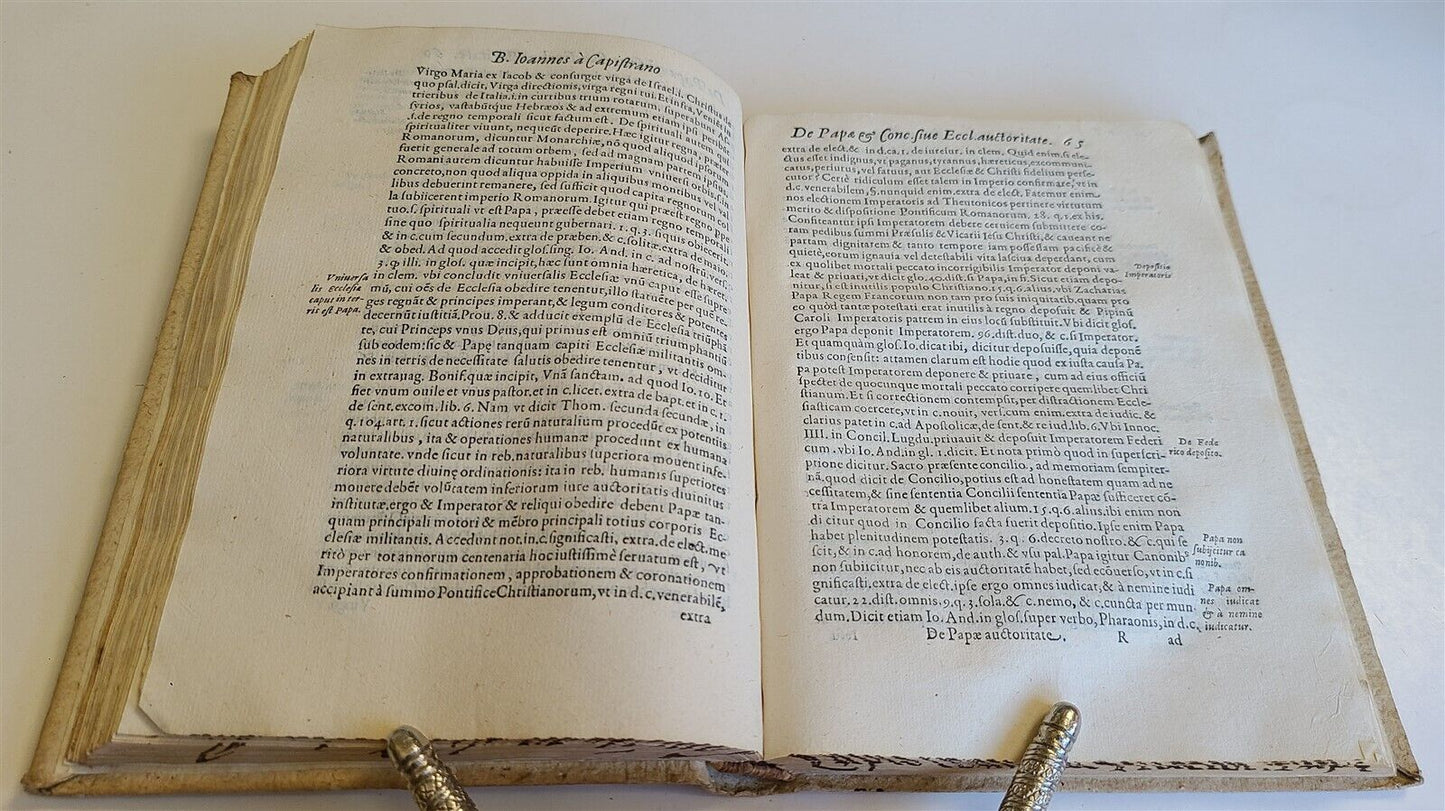 B. Ioannes à Capistrano
Virgo Maria ex Iacob & consurget virga de Israel.i. Christus de
quo psal.dicit, Virga directionis, virga regni tui. Et infra, Venièt in
trieribus de Italia.i.in curribus trium rotarum, superabunt As
syrios, vastabũtque Hebræos & ad extremum etiam ipsi peribũt
.s.de regno temporali sicut factum est. De spirituali autem quia
spiritualiter viuunt, nequeũt deperire. Hæc igitur regna, præter
Romanorum, dicuntur Monarchiæ, nõ quod aliquod ipsorum
fuerit generale ad totum orbem, sed ad magnam partem ipsius.
Romani autem dicuntur habuisse Imperium vniuersi orbis, in
concreto, non quod aliqua oppida in aliquibus montibus vel val
libus debuerint remanere, sed sufficit quod capita regnorum col
la subiicerent imperio Romanorum. Igitur qui præest regno ppe
tuo.s. spirituali vt est Papa, præesse debet etiam regno temporali
sine quo spiritualia nequeunt gubernari. 1. q. 3. siquis obiecerit
& in c.cum secundum.extra de præben. & c. solitæ.extra de maio.
& obed. Ad quod accedit glos. sing. Io. And. in c. ad nostrũ vers.
3. q. illi. in glos. quæ incipit, hæc sunt omnia hæretica, de hæret.
Vniuersa
lis Ecclesiæ
caput in ter-
ris est Papa.
in clem. vbi concludit vniuersalis Ecclesiæ vnũ caput esse supre
mũ, cui oẽs de Ecclesia obedire tenentur, illo statuẽte per quẽ re-
ges regnãt & principes imperant, & legum conditores & potentes
decernũt iustitiã, Prou. 8. & adducit exemplũ de Ecclesia triũphã
te, cui Princeps vnus Deus, qui primus est omniũ triumphantiũ
sub eodem: sic & Papę tanquam capiti Ecclesiæ militantis om-
nes in terris de necessitate salutis obedire tenentur, vt deciditur
in extrauag. Bonif. quæ incipit, Vnã sanctam. ad quod Io. 10. Et
fiet vnum ouile et vnus pastor. et in c. licet. extra de bapt. et in c. 1.
de sent. excom. lib. 6. Nam vt dicit Thom. secunda secundæ, in
q. 104. art. 1. sicut actiones rerũ naturalium procedũt ex potentiis
naturalibus, ita & operationes humanæ procedunt ex humana
voluntate. vnde sicut in reb. naturalibus superiora mouent infe-
riora virtute diuinę ordinationis: ita in reb. humanis superiores
mouere debẽt volũtatem inferiorum iure auctoritatis diuinitus
institutæ. ergo & Imperator & reliqui obedire debent Papæ tan-
quam principali motori & mẽbro principali totius corporis Ec-
clesiæ militantis. Accedunt not. in c. significasti, extra. de elect. me
ritò per tot annorum centenaria hoc iustissimè seruatum est, vt
Imperatores confirmationem, approbationem & coronationem
accipiant à summo Pontifice Christianorum, vt in d. c. venerabilẽ,
extra
De Papæ & Conc. siue Eccl. auctoritate. 65
extra de elect. & in d. ca. 1. de iureiur. in clem. Quid enim. si ele-
ctus esset indignus, vt paganus, tyrannus, hæreticus, excommuni-
catus, periurus, vel fatuus, aut Ecclesiæ & Christi fidelium perse-
cutor? Certè ridiculum esset talem in Imperio confirmare, vt in
d.c. venerabilem, §. nunquid enim. extra de elect. Fatemur enim
nos electionem Imperatoris ad Theutonicos pertinere virtutum
merito & dispositione Pontificum Romanorum. 28. q. 1. ex his.
Consiteantur ipsi Imperatorem debere ceruicem submittere co-
ram pedibus summi Præsulis & Vicarii Iesu Christi, & caueant ne
partam dignitatem & tanto tempore iam possessam pacificè &
quietè, eorum ignauia vel detestabili vita lasciua deperdant, cum
Depositio
Imperatoris
ex quolibet mortali peccato incorrigibilis Imperator deponi va-
leat & priuati, vt dicit glo. 40. dist. si Papa, in fi. Sicut etiam depo-
ni, si est inutilis populo Christiano. 15. q. 6. alius. vbi Zacharias
Papa Regem Francorum non tam pro suis iniquitatib. quam pro
eo quòd tantæ potestati erat inutilis à regno deposuit & Pipinũ
Caroli Imperatoris patrem in eius locũ substituit. Vbi dicit glos.
ergo Papa deponit Imperatorem. 96. dist. duo, & c. si Imperator.
Et quamquàm glos. Io. dicat ibi, dicitur deposuisse, quia deponẽ
tibus consensit: attamen clarum est hodie quod ex iusta causa Pa-
pa potest Imperatorem deponere & priuare, cum ad eius officiũ
spectet de quocunque mortali peccato corripere quemlibet Chri
stianum. Et si correctionem contempsit, per districtionem Eccle-
siasticam coercere, vt in c. nouit, vers. cum enim. extra de iudic. &
clarius patet in c. ad Apostolicæ, de sent. & re iud. lib. 6. Vbi Innoc.
IIII. in Concil. Lugdu. priuauit & deposuit Imperatorem Federi
De Fede
rico deposito.
cum. vbi Io. And. in gl. 1. dicit. Et nota primò quod in superscri-
ptione dicitur. Sacro præsente concilio, ad memoriam sempiter-
nã. quod dicit de Concilio, potius est ad honestatem quam ad ne
cessitatem, & sine sententia Concilii sententia Papæ sufficeret cõ-
tra Imperatorem & quemlibet alium. 15. q. 6. alius. ibi enim non
dicitur quod in Concilio facta fuerit depositio. Ipse enim Papa
habet plenitudinem potestatis. 3. q. 6. decreto nostro. & c. qui se
Papa non
subijcitur ca
nonib.
scit, & in c. ad honorem, de auth. & vsu pal. Papa igitur Canonib.
non subiicitur, nec ab eis auctoritatẽ habet, sed ecõuerso, vt in c. si
gnificasti, extra de elect. ipse ergo omnes iudicat, & à nemine iudi
Papa om-
nes iudicat
& à nemine
iudicatur.
catur. 22. dist. omnis. 9. q. 3. sola. & c. nemo, & c. cuncta per mun
dum. Dicit etiam Io. And. in glos. super verbo, Pharaonis, in d. c.
De Papæ auctoritate. R ad